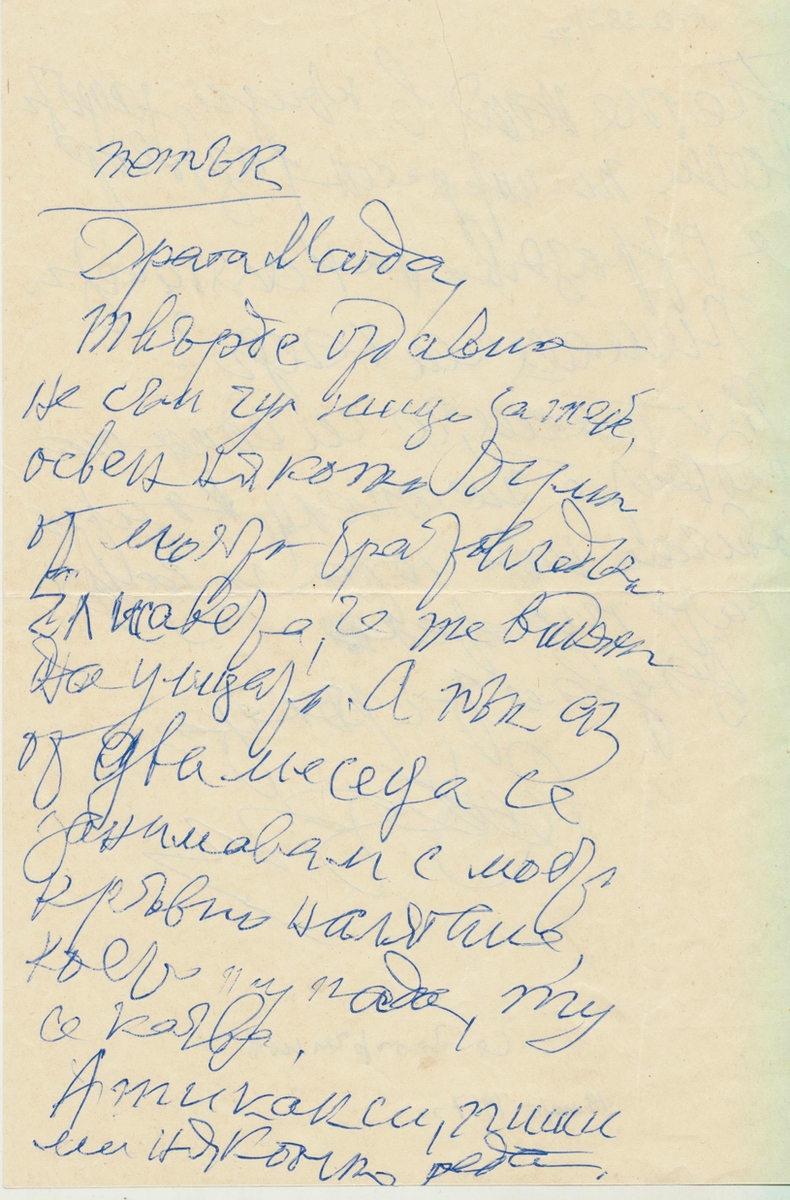 петък
Драга Магда,
Твърде отдавна
не съм чул нищо за тебе,
освен няколко думи
от моята братовчедка
Елисавета, че те видяла
на улицата. А пък аз
от два месеца се
занимавам с моето
кръвно налягане,
което ту пада, ту
се качва.
А ти как си, пиши
ми няколко реда.